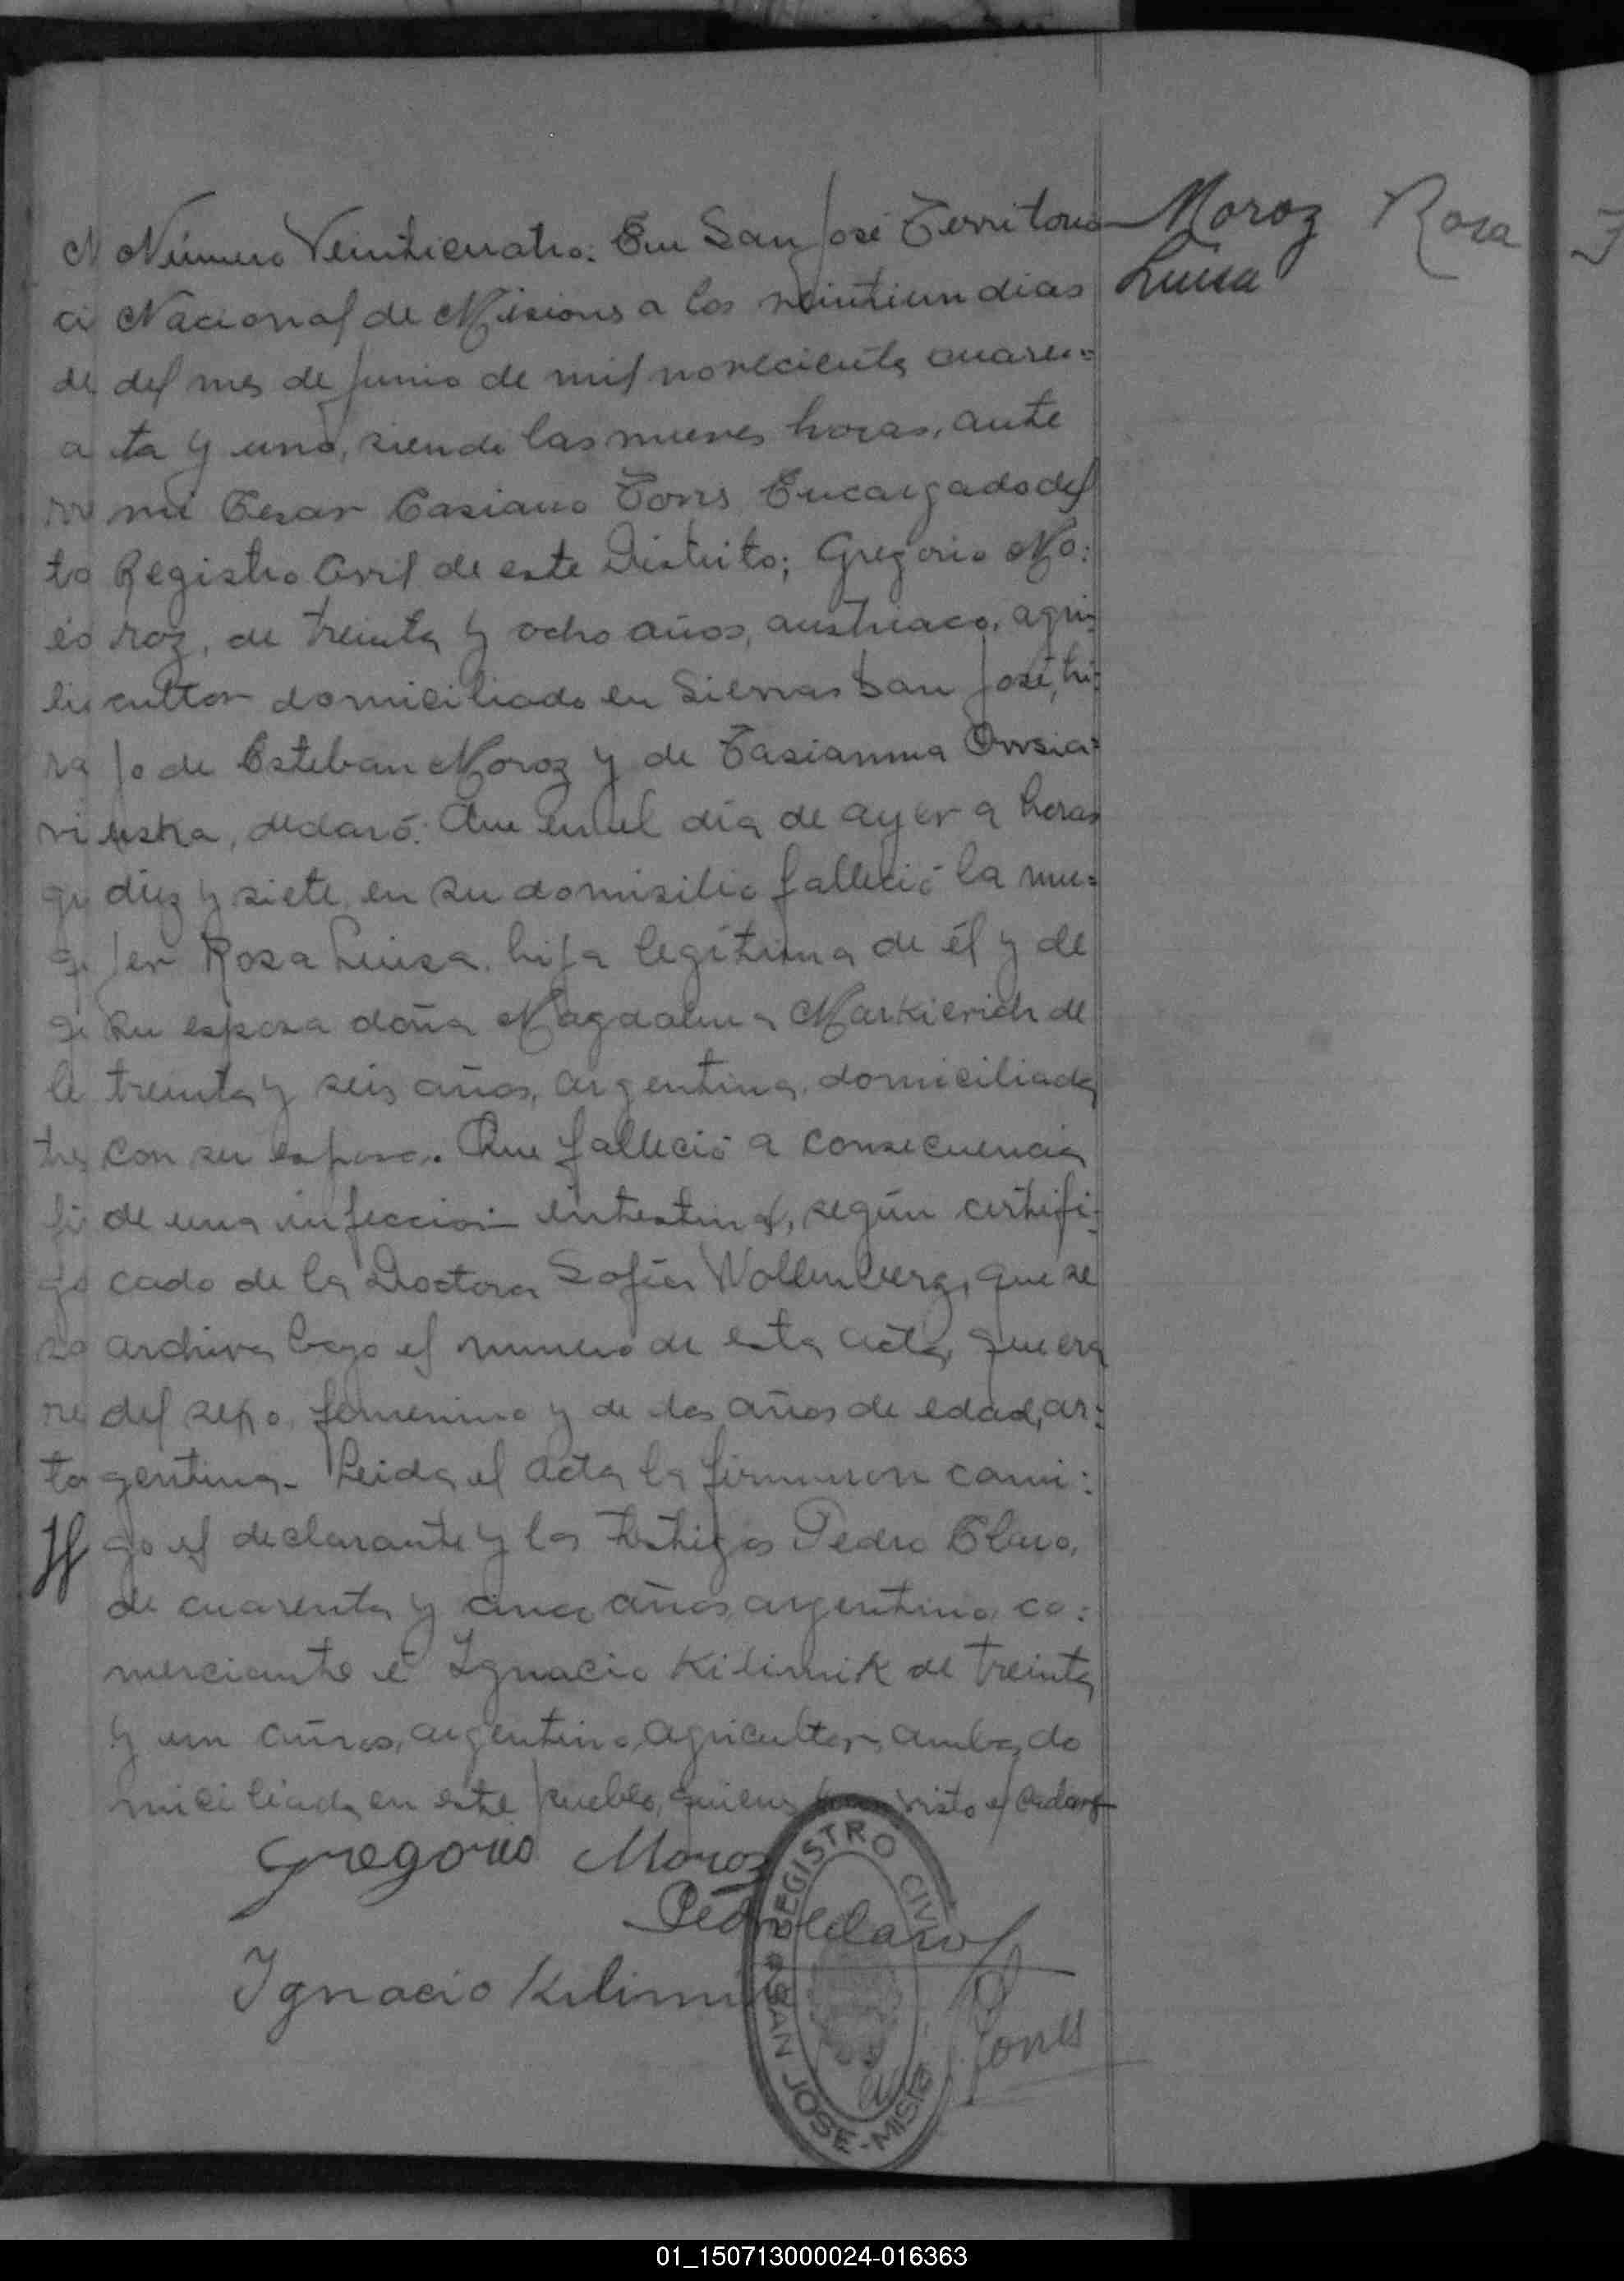 Moroz Rosa
Luisa
Número Veinticuatro: En San José Territorio
Nacional de Misiones a los veintiun dias
del mes de Junio de mil novecientos cuaren=
ta y uno, siendo las nueves horas, ante
mi Cesar Casiano Torres Encargado del
Registro Civil de este Distrito; Gregorio Mo:
roz, de treinta y ocho años, austriaco, agri:
cultor domiciliado en Sierras San José, hi:
jo de Esteban Moroz y de Tasianna
declaró: Que en el día de ayer a horas
diez y siete, en su domisilio falleció la mu=
jer Rosa Luisa, hija legítima de él y de
su esposa doña Magdalena Markievich de
treinta y seis años, argentina, domiciliada
con su esposo. Que falleció a consecuencia
de una infeccion intestinal, según certifi:
cado de la Doctora Sofía Wollenberg, que se
archiva bajo el numero de esta acta, que era
del sexo femenino y de dos años de edad, ar:
gentina. Leida el acta la firmaron conmi:
go el declarante y los testigos Pedro Claro,
de cuarenta y cinco años, argentino, co:
merciante e Ignacio Kilimik de treinta
y un años, argentino, agricultor, ambos do
miciliados en este pueblo, quienes han visto el
Gregorio Moroz
Pedro Claro
Ignacio Kilimnik
Torres
REGISTRO CIVIL
SAN JOSE - MISIS
01_150713000024-016363